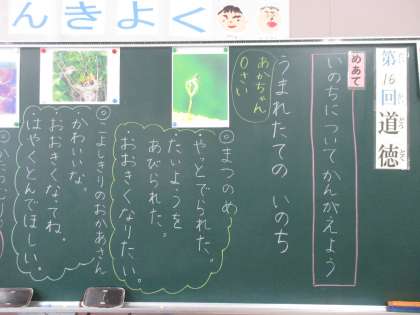 んきよく
第16回 道徳
めあて
いのちについてかんがえよう
うまれたての いのち
あかちゃん
0さい
◎まつのめ
・やっとでられた。
・たいようを
あびられた。
・おおきくなりたい。
◎こよしきりのおかあさん
・かわいいな。
・おおきくなってね。
・はやくとんでほしい。